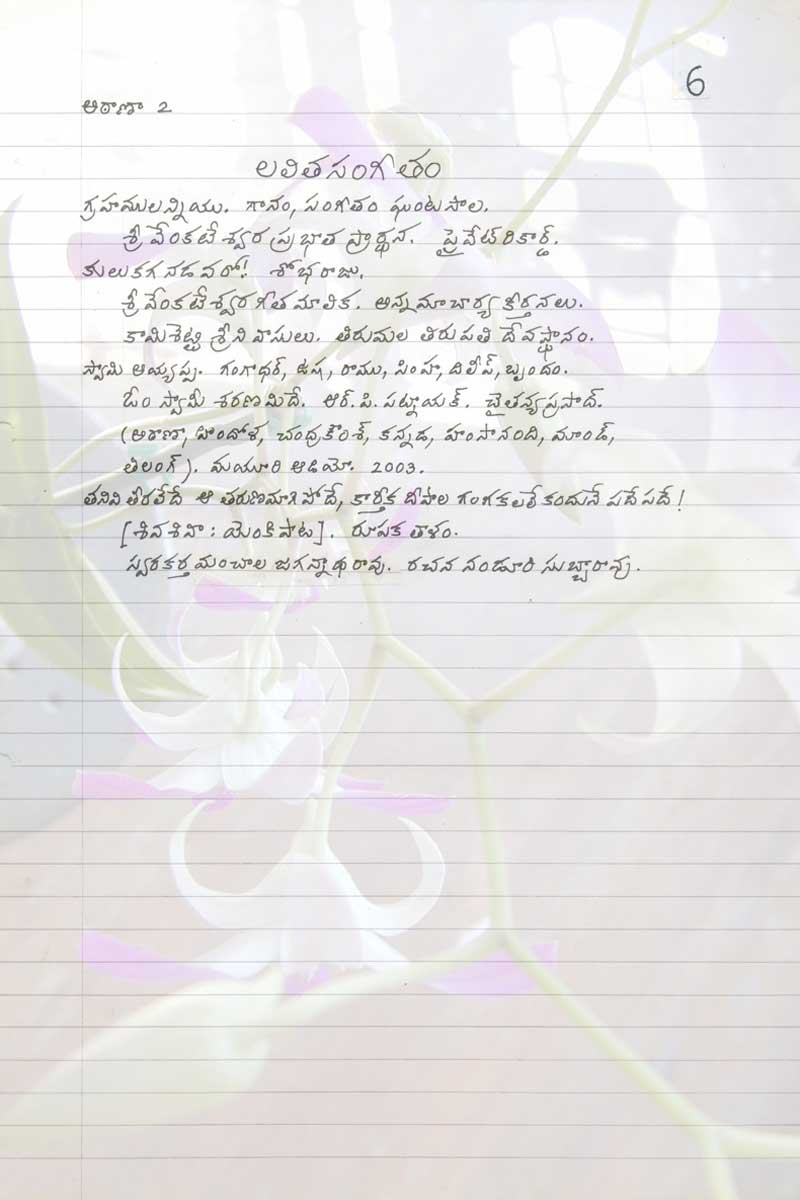 6
ఆఠాణా 2
లలితసంగీతం
గ్రహములన్నియు. గానం, సంగీతం ఘంటసాల.
శ్రీ వేంకటేశ్వర ప్రభాత ప్రార్థన. ప్రైవేట్ రికార్డ్.
కులుకగ నడవరో! శోభరాజు.
శ్రీ వేంకటేశ్వర గీత మాలిక. అన్నమాచార్య కీర్తనలు.
కామిశెట్టి శ్రీనివాసులు. తిరుమల తిరుపతి దేవస్థానం.
స్వామి అయ్యప్ప. గంగాధర్, ఉష, రాము, సింహ, దిలీప్, బృందం.
ఓం స్వామీ శరణమిదే. ఆర్.పి. పట్నాయక్. చైతన్యప్రసాద్.
(ఆఠాణా, హిందోళ, చంద్రకౌంశ్, కన్నడ, హంసానంది, మాండ్,
తిలంగ్). మయూరి ఆడియో. 2003.
తనివి తీరలేదే ఆ తరుణిమాగిపోదే, కార్తీక దీపాల గంగకలలే కందునే పదేపదే!
[శివశివా : యెంకిపాట]. రూపక తాళం.
స్వరకర్త మంచాల జగన్నాథరావు. రచన నండూరి సుబ్బారావు.